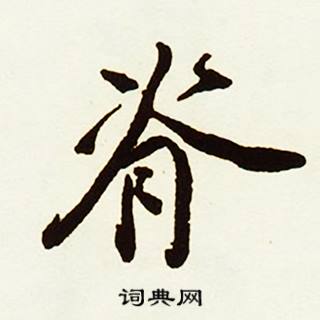 脊
词典网